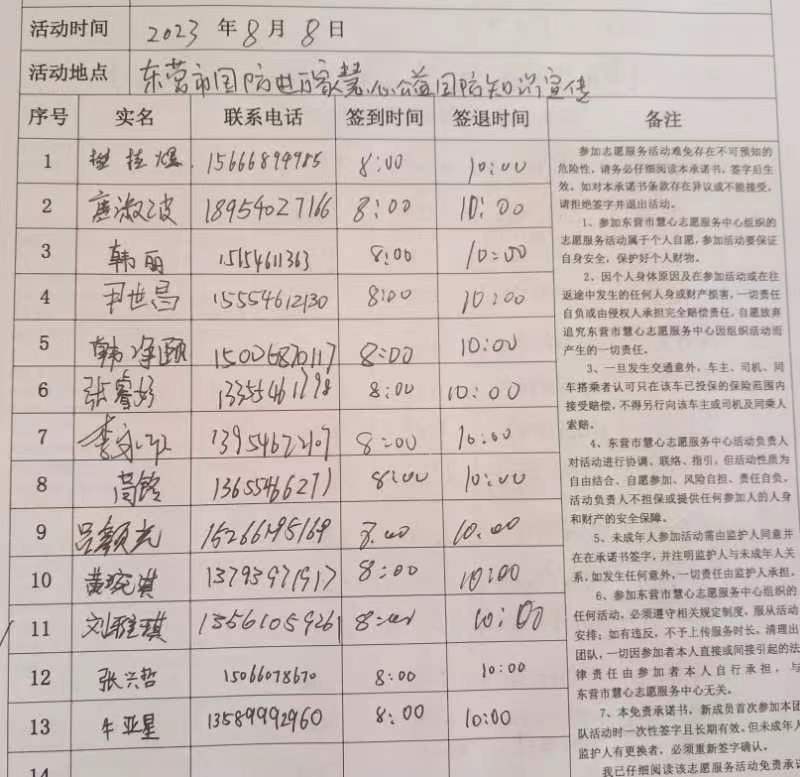 活动时间 2023 年 8 月 8 日
活动地点 东营市国防电力 慧心公益国防知识宣传
序号 实名 联系电话 签到时间 签退时间 备注
1 桂煜 15666899985 8:00 10:00
2 唐淑波 18954027166 8:00 10:00
3 韩丽 15154611363 8:00 10:00
4 尹世昌 15554612130 8:00 10:00
5 韩净颐 15006870117 8:00 10:00
6 张睿 13355461798 8:00 10:00
7 李 13954672107 8:00 10:00
8 高铭 13655466271 8:00 10:00
9 吕颖 15266195169 8:00 10:00
10 黄琬淇 13793971917 8:00 10:00
11 刘 琪 13561059261 8:00 10:00
12 张兴哲 15066078670 8:00 10:00
13 牛亚星 13589992960 8:00 10:00
14
参加志愿服务活动难免存在不可预知的
危险性，请务必仔细阅读本承诺书，签字后生
效。如对本承诺书条款存在异议或不能接受，
请拒绝签字并退出活动。
1、参加东营市慧心志愿服务中心组织的
志愿服务活动属于个人自愿，参加活动要保证
自身安全，保护好个人财物。
2、因个人身体原因及在参加活动或在往
返途中发生的任何人身或财产损害，一切责任
自负或由侵权人承担完全赔偿责任，自愿放弃
追究东营市慧心志愿服务中心因组织活动而
产生的一切责任。
3、一旦发生交通意外，车主、司机、同
车搭乘者认可只在该车已投保的保险范围内
接受赔偿，不得另行向该车主或司机及同乘人
索赔。
4、东营市慧心志愿服务中心活动负责人
对活动进行协调、联络、指引，但活动性质为
自由结合、自愿参加、风险自担、责任自负，
活动负责人不担保或提供任何参加人的人身
和财产的安全保障。
5、未成年人参加活动需由监护人同意并
在在承诺书签字，并注明监护人与未成年人关
系，如发生任何意外，一切责任由监护人承担。
6、参加东营市慧心志愿服务中心组织的
任何活动，必须遵守相关规定制度，服从活动
安排；如有违反，不予上传服务时长，清理出
团队，一切因参加者本人直接或间接引起的法
律责任由参加者本人自行承担，与
东营市慧心志愿服务中心无关。
7、本免责承诺书，新成员首次参加本团
队活动时一次性签字且长期有效，但未成年人
监护人有更换者，必须重新签字确认。
我已仔细阅读该志愿服务活动免责承诺